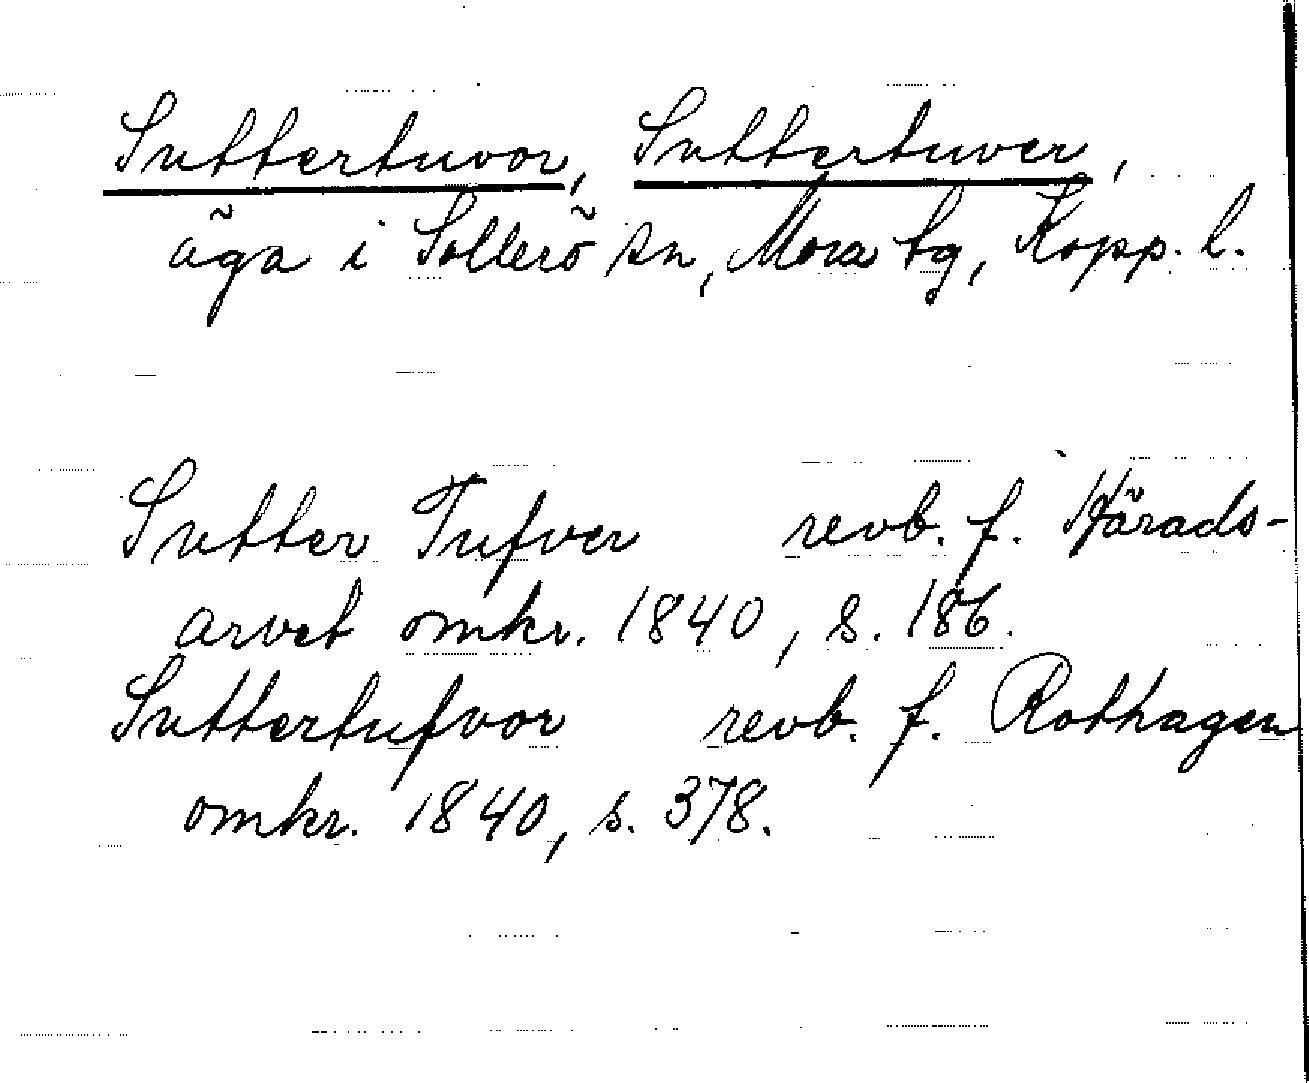 Suttertuvor, Suttertuver,
äga i Sollerö sn, Mora tg, Kopp. l.
Sutter Tufver revb. f. Härads-
arvet omkr. 1840, s. 186.
Suttertufvor revb. f. Rothagen
omkr. 1840, s. 378.